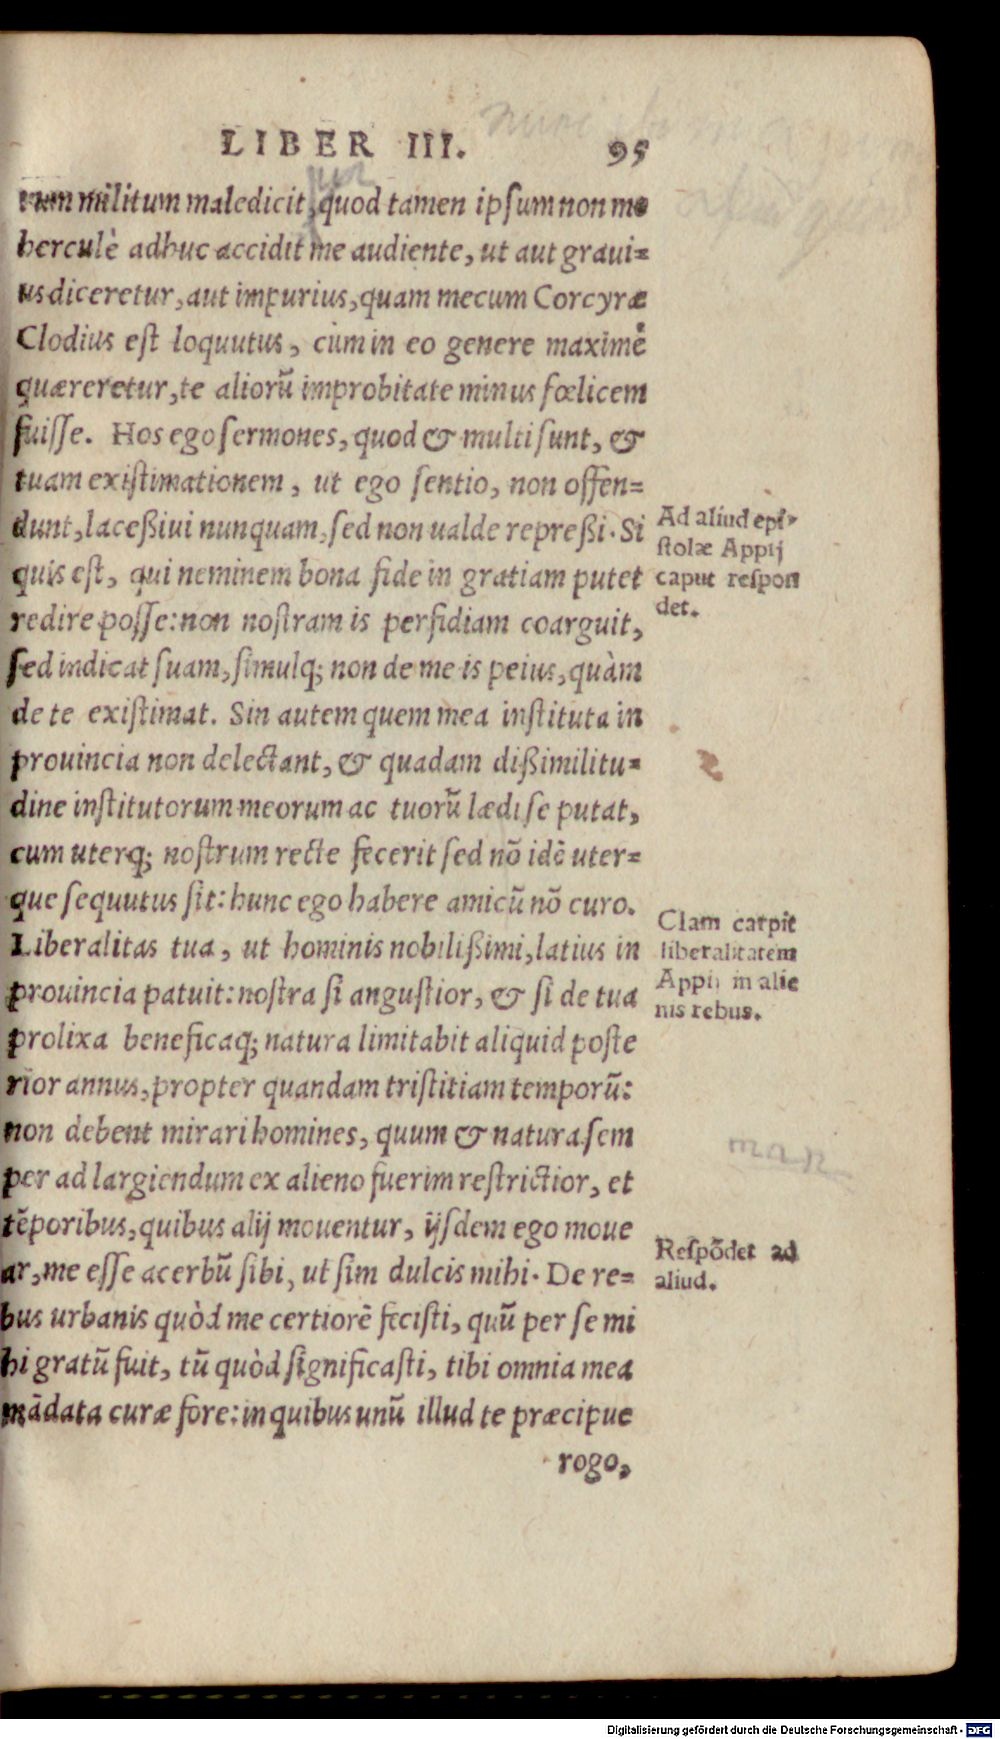 LIBER III. 95
rum militum maledicit, quod tamen ipſum non me
herculè adhuc accidit me audiente, ut aut graui=
us diceretur, aut impurius, quam mecum Corcyræ
Clodius eſt loquutus, cùm in eo genere maximè
quæreretur, te aliorũ improbitate minus fœlicem
fuiſſe. Hos ego ſermones, quod & multi ſunt, &
tuam exiſtimationem, ut ego ſentio, non offen=
dunt, laceßiui nunquam, ſed non ualde repreßi. Si
quis eſt, qui neminem bona fide in gratiam putet
redire poſſe: non noſtram is perfidiam coarguit,
ſed indicat ſuam, ſimulq; non de me is peius, quàm
de te exiſtimat. Sin autem quem mea inſtituta in
prouincia non delectant, & quadam dißimilitu=
dine inſtitutorum meorum ac tuorũ lædi ſe putat,
cum uterq; noſtrum recte fecerit ſed nõ idẽ uter=
que ſequutus ſit: hunc ego habere amicũ nõ curo.
Liberalitas tua, ut hominis nobilißimi, latius in
prouincia patuit: noſtra ſi anguſtior, & ſi de tua
prolixa beneficaq; natura limitabit aliquid poſte
rior annus, propter quandam triſtitiam temporũ:
non debent mirari homines, quum & natura ſem
per ad largiendum ex alieno fuerim reſtrictior, et
tẽporibus, quibus alij mouentur, ijſdem ego moue
ar, me eſſe acerbũ ſibi, ut ſim dulcis mihi. De re=
bus urbanis quòd me certiorẽ feciſti, quũ per ſe mi
hi gratũ fuit, tũ quòd ſignificaſti, tibi omnia mea
mãdata curæ fore: in quibus unũ illud te præcipue
rogo,
Ad aliud epi=
ſtolæ Appij
caput reſpon
det.
Clam carpit
liberalitatem
Appij in alie
nis rebus.
Reſpõdet ad
aliud.
Digitalisierung gefördert durch die Deutsche Forschungsgemeinschaft - DFG